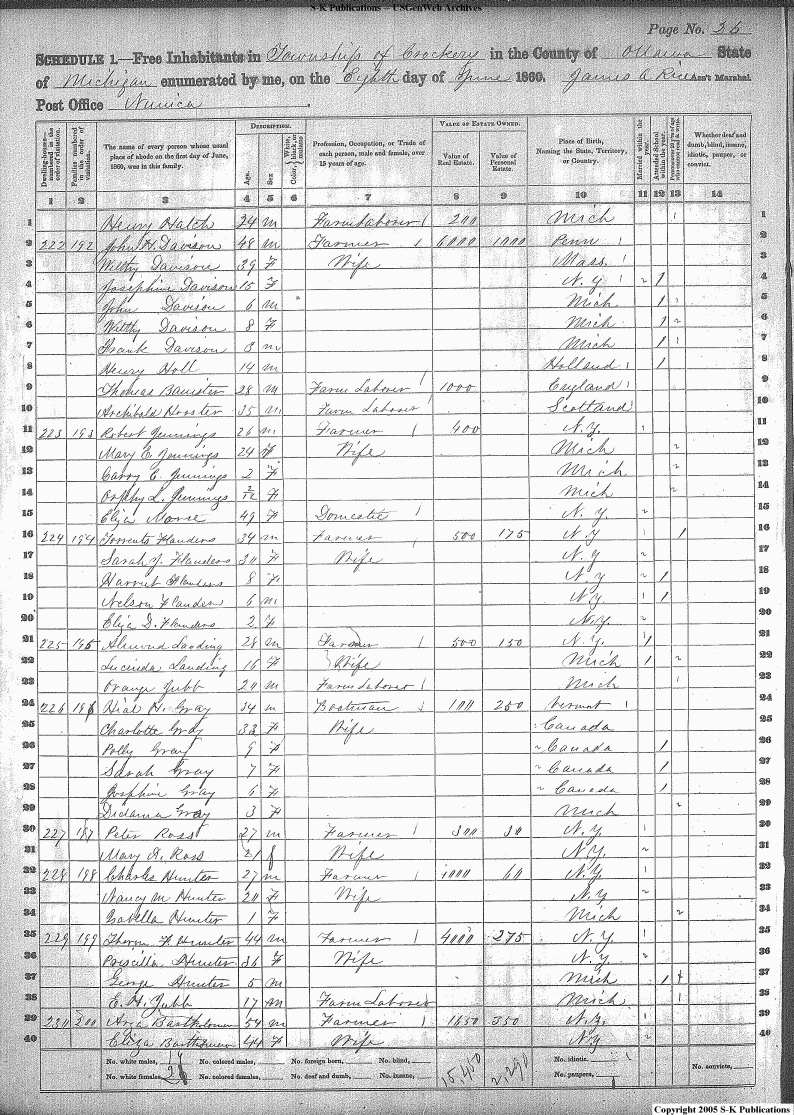 S-K Publications – USGenWeb Archives
Page No. 25
SCHEDULE 1.—Free Inhabitants in Township of Crockery in the County of Ottawa State
of Michigan enumerated by me, on the Eighth day of June 1860. James A Rice Ass't Marshal
Post Office Nunica.
Dwelling-houses— numbered in the order of visitation.
Families numbered in the order of visitation.
The name of every person whose usual place of abode on the first day of June, 1860, was in this family.
DESCRIPTION.
Age.
Sex
Color, White, black, or mulatto
Profession, Occupation, or Trade of each person, male and female, over 15 years of age.
VALUE OF ESTATE OWNED.
Value of Real Estate.
Value of Personal Estate.
Place of Birth, Naming the State, Territory, or Country.
Married within the year.
Attended School within the year.
Whether deaf and dumb, blind, insane, idiotic, pauper, or convict.
1 2 3 4 5 6 7 8 9 10 11 12 13 14
1 Henry Hatch 24 m Farm Laborer 200 Mich 1
2 222 192 John H. Davison 48 m Farmer 6000 1000 Penn 2
3 Wilthy Davison 39 F Wife Mass. 3
4 Josephine Davison 15 F N.Y. 1 4
5 John Davison 6 m Mich 1 5
6 Wilthy Davison 8 F Mich 1 6
7 Frank Davison 3 m Mich 1 7
8 Henry Holl 14 m Holland 1 8
9 Thomas Banister 28 m Farm Laborer 1000 England 9
10 Archibald 35 m Farm Laborer Scotland 10
11 223 193 Robert Jennings 26 m Farmer 400 N.Y. 11
12 Mary E. Jennings 24 F Wife Mich 12
13 Carry E. Jennings 2 F Mich 13
14 L. Jennings 2/12 F Mich 14
15 Eliza Morse 49 F Domestic N.Y. 15
16 224 194 Flanders 34 m Farmer 500 175 N.Y 1 16
17 Sarah Y. Flanders 30 F Wife N.Y 17
18 Harriet Flanders 8 F N.Y 1 18
19 Nelson Flanders 6 m N.Y 1 19
20 Eliza D. Flanders 2 F N.Y. 20
21 225 195 Landing 28 m Farmer 500 150 N.Y. 1 21
22 Lucinda Landing 16 F Wife Mich 1 22
23 Orange Jubb 20 m Farm Laborer Mich 23
24 226 196 Hial H. Gray 34 m Boatman 100 250 Vermont 24
25 Charlotte Gray 33 F Wife Canada 25
26 Polly Gray 9 F Canada 1 26
27 Sarah Gray 7 F Canada 1 27
28 Josephine Gray 6 F Canada 1 28
29 Didama Gray 3 F Mich 29
30 227 197 Peter Ross 27 m Farmer 300 30 N.Y. 30
31 Mary A. Ross 21 f Wife N.Y. 31
32 228 198 Charles Hunter 27 m Farmer 1000 60 N.Y 32
33 Nancy M Hunter 20 F Wife N.Y 33
34 Isabella Hunter 1 F Mich 34
35 229 199 F Hunter 44 m Farmer 4000 275 N.Y. 35
36 Priscilla Hunter 36 F Wife N.Y. 36
37 George Hunter 5 m Mich 1 37
38 E. H. Jubb 17 m Farm Laborer Mich 38
39 230 200 Bartholomew 54 m Farmer 1650 350 N.Y. 39
40 Eliza Bartholomew 44 F Wife N.Y 40
No. white males, 19 No. colored males, No. foreign born, No. blind, 15,450 2,290 No. idiotic, No. convicts,
No. white females, 21 No. colored females, No. deaf and dumb, No. insane, No. paupers,
Copyright 2005 S-K Publications